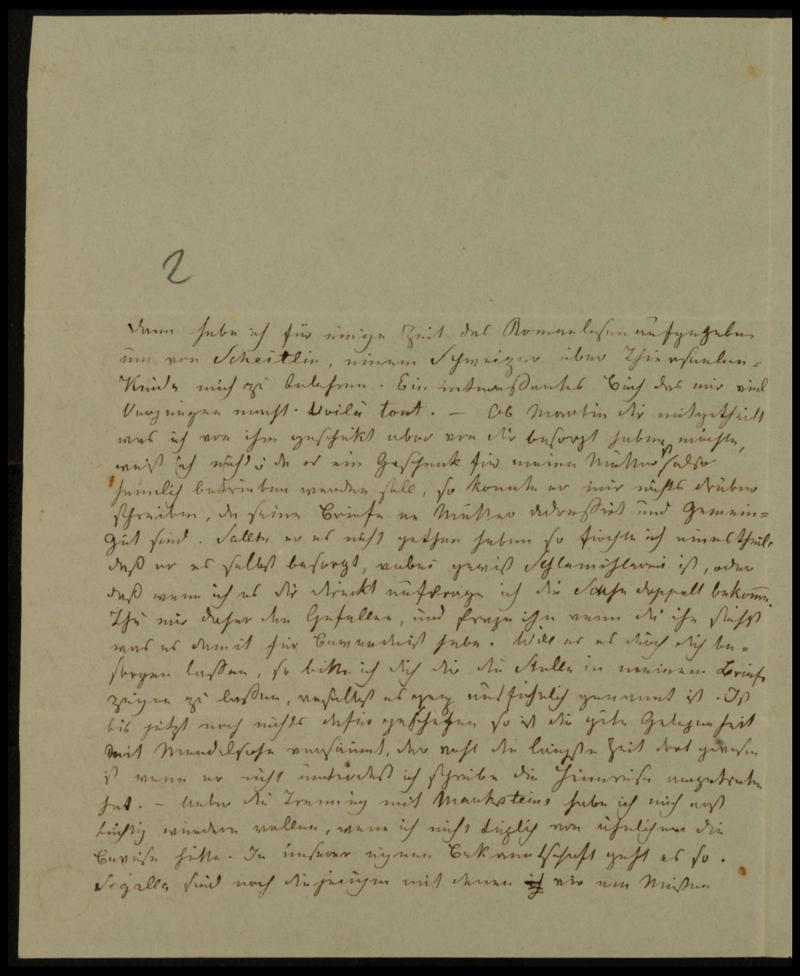 2
Dann habe ich für einige Zeit das Romanlesen aufgegeben
um von Scheitlin, einem Schweizer über Thierseelen-
Kunde mich zu belehren. Ein interessantes Buch das mir viel
Vergnügen macht. Voilà tout. – Ob Martin dir mitgetheilt
was ich von ihm geschikt aber von dir besorgt haben möchte,
weiß ich nicht; da es ein Geschenk für meine Mutter ist also
heimlich betrieben werden soll, so konnte er mir nichts drüber
schreiben, da seine Briefe an Mutter adressirt und Gemein-
gut sind. Sollte er es nicht gethan haben so fürchte ich eines theils
daß er es selbst besorgt, wobei gewiß Schlemihlerei ist, oder
daß wenn ich es dir direckt auftrage ich die Sache doppelt bekomme.
Thu mir daher den Gefallen, und frage ihn wenn du ihn siehst
was es damit für Bewandniß habe. Will er es durch dich be-
sorgen lassen, so bitte ich dich dir die Stelle in meinem Briefe
zeigen zu lassen, woselbst es ganz ausführlich genannt ist. Ist
bis jetzt noch nichts dafür geschehen so ist die gute Gelegenheit
mit Mendelsohn versäumt, der wohl die längste Zeit dort gewesen
ist wenn er nicht unterdeß ich schreibe die Heimreise angetreten
hat. – Ueber die Trennung mit Marksteins habe ich mich erst
tüchtig wundern wollen, wenn ich nicht täglich von ähnlichem die
Beweise hätte. In unserer eignen Bekanntschaft geht es so.
sind noch diejenigen mit denen wir am Meisten